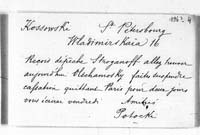 Kossowski St Petersbourg
Wladimirskaia 16
Reçois dépêche Stroganoff allez
aujourdhui faites suspendre
cassation quittons Paris pour deux jours
vous serez vendredi Amitiés
Potocki